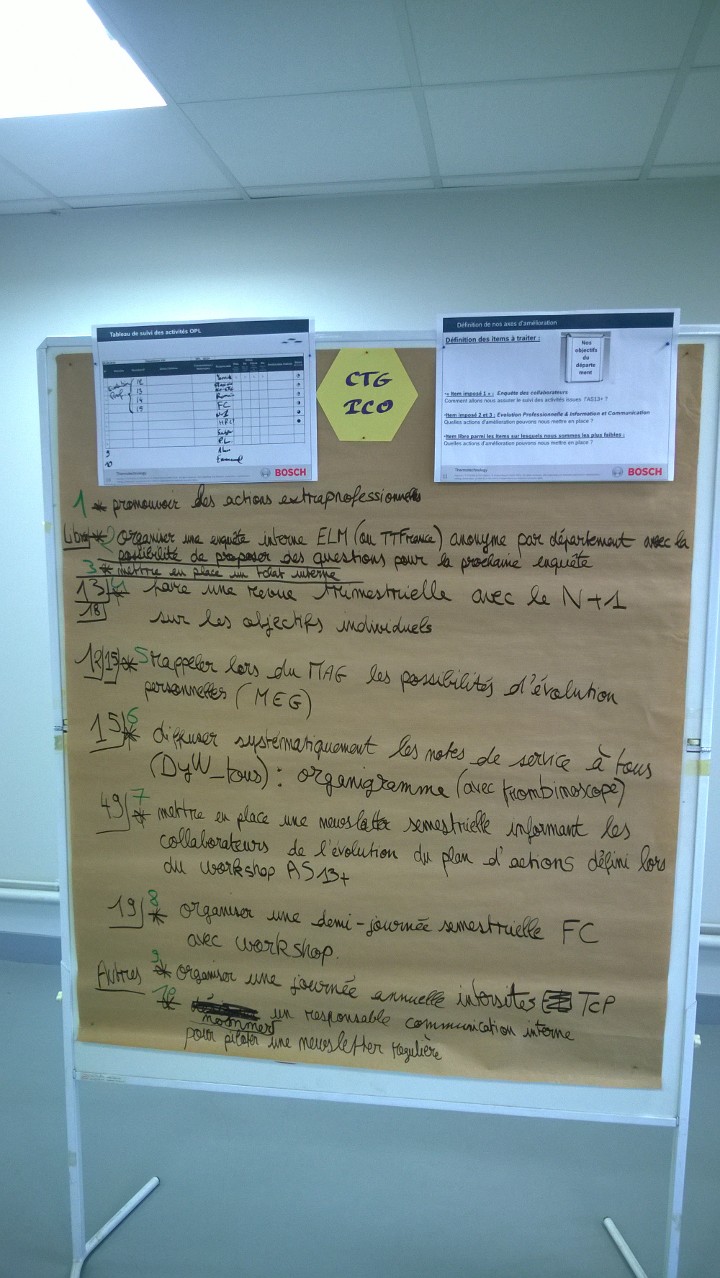 Tableau de suivi des activités OPL
12
13
14
15
FC
9
10
Thermotechnology
BOSCH
CTG
ICO
Définition de nos axes d'amélioration
Définition des items à traiter :
Nos
objectifs
du
départe
ment
« Item imposé 1 » : Enquête des collaborateurs
Comment allons nous assurer le suivi des activités issues l'AS13+ ?
Item imposé 2 et 3 : Evolution Professionnelle & Information et Communication
Quelles actions d'amélioration pouvons nous mettre en place ?
Item libre parmi les items sur lesquels nous sommes les plus faibles :
Quelles actions d'amélioration pouvons nous mettre en place ?
Thermotechnology
BOSCH
1 * promouvoir des actions extraprofessionnelles
* 2 organiser une enquête interne ELM (ou TTFrance) anonyme par département avec la
possibilité de proposer des questions pour la prochaine enquête
3 * mettre en place un interne
13 faire une revue trimestrielle avec le N+1
18 sur les objectifs individuels
12 15 * 5 rappeler lors du MAG les possibilités d'évolution
personnelles (MEG)
15 6 * diffuser systématiquement les notes de service à tous
(DyW_tous) : organigramme (avec trombinoscope)
49 7 * mettre en place une newsletter semestrielle informant les
collaborateurs de l'évolution du plan d'actions défini lors
du workshop AS13+
19 8 * organiser une demi-journée semestrielle FC
avec workshop.
Autres 9 * organiser une journée annuelle intersites TcP
10 * nommer un responsable communication interne
pour piloter une newsletter régulière